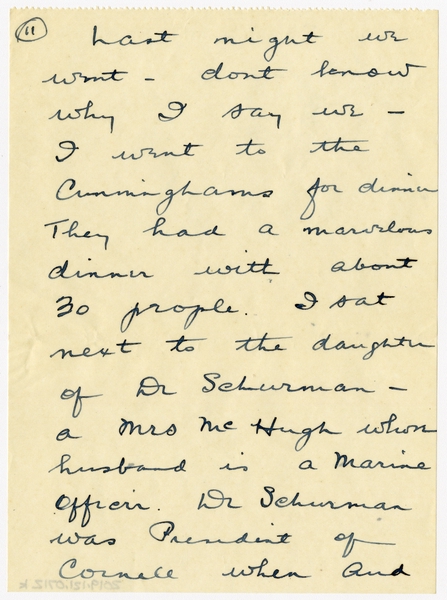 11
Last night we
went - dont know
why I say we -
I went to the
Cunninghams for dinner
They had a marvelous
dinner with about
30 people. I sat
next to the daughter
of Dr Schurman -
a Mrs McHugh whose
husband is a Marine
Officer. Dr Schurman
was President of
Cornell when and
2019.121.0712k